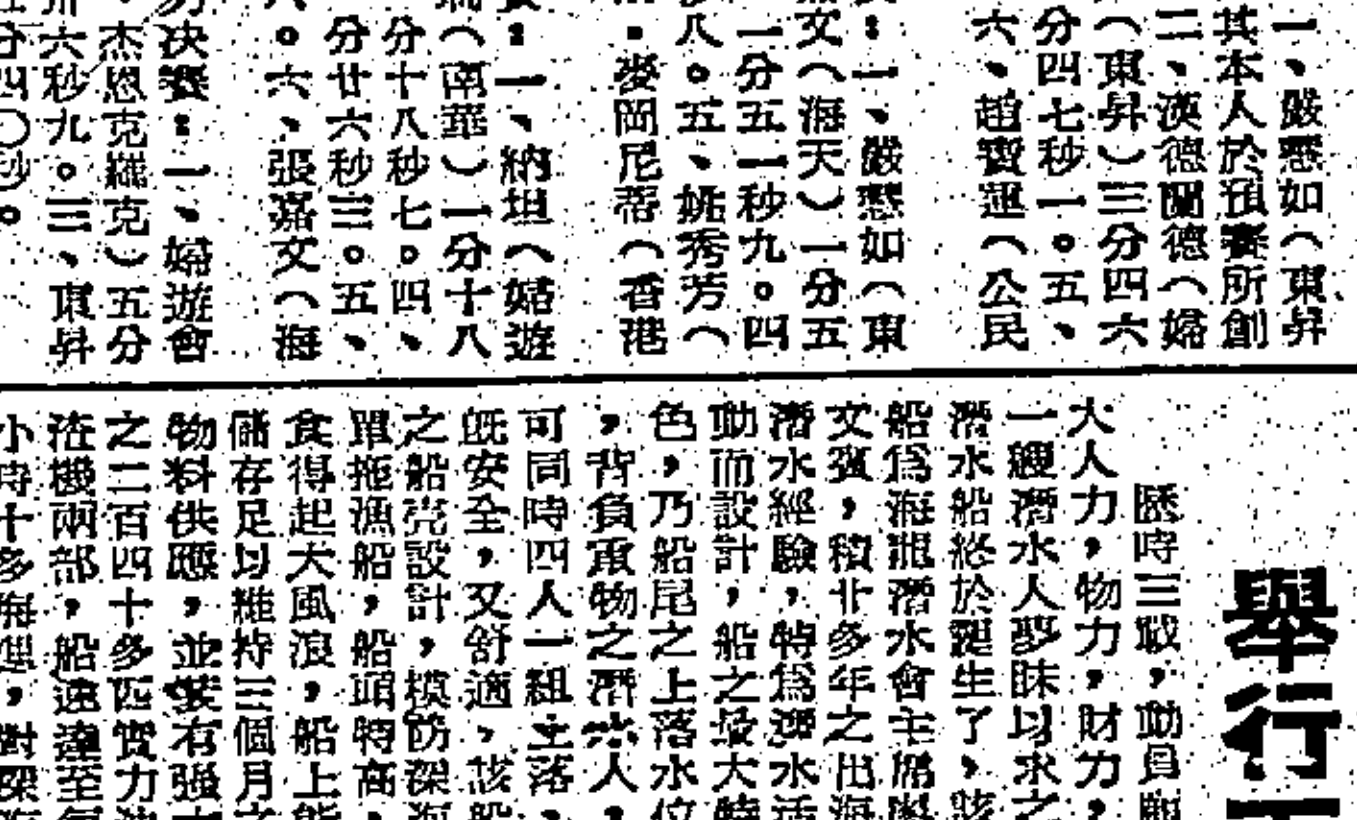 一、嚴懸如（東昇
其本人於預賽所創
二、漢德蘭德（婦
（東昇）三分四六
分四七秒一。五、
六、趙寶運（公民
：一、嚴懸如（東
文（海天）一分五
一分五一秒九。四
八。五、姚秀芳（
：麥岡尼蒂（香港
：一、納坦（婦遊
（南華）一分十八
分十八秒七。四、
分廿六秒三。五、
。六、張嘉文（海
決賽：一、婦遊會
杰恩克羅克）五分
六秒九。三、東昇
分四〇秒。
舉行
歷時三載，動員
大人力，物力，財力，
一艘潛水人夢昧以求之
潛水船終於誕生了，該
船為海龍潛水會主席
文強，積廿多年之出海
潛水經驗，特為潛水活
動而設計，船之最大特
色，乃船尾之上落水位
，背負重物之潛水人，
可同時四人一組上落，
既安全，又舒適，該船
之船壳設計，模仿深海
單拖漁船，船頭特高，
食得起大風浪，船上能
儲存足以維持三個月之
物料供應，並裝有強
之二百四十多匹實力
渣機兩部，船速達至每
小時十多海浬，對深